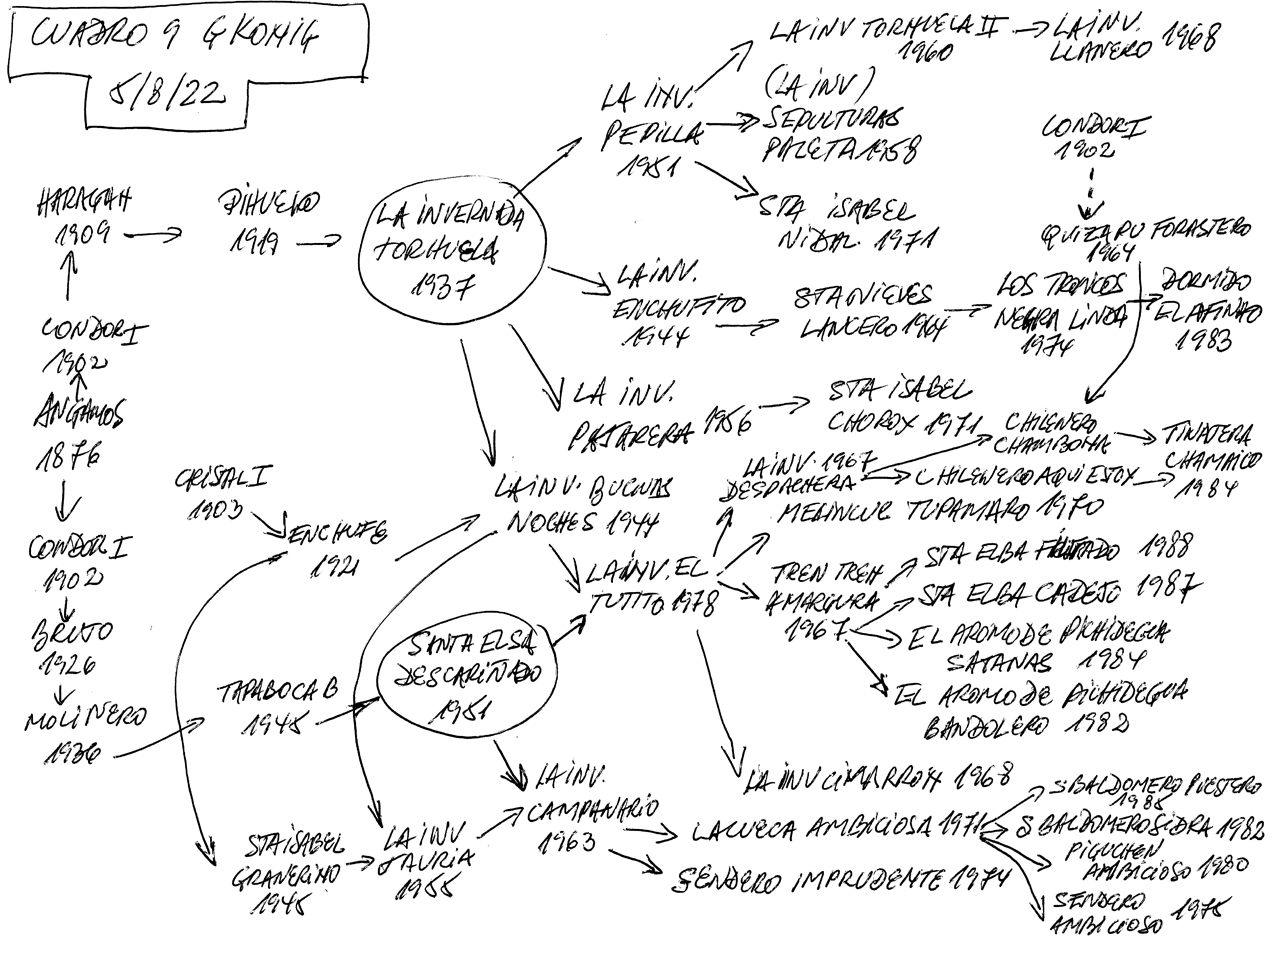 CUADRO 9 G KONIG
5/8/22
LA INV TORHUELA II
1960
LA INV.
LLANERO 1968
LA INV.
PEPILLA
1951
(LA INV)
SEPULTURAS
PALETA 1958
STA ISABEL
NIDAL. 1971
CONDORI
1902
QUIZAPU FORASTERO
1964
HARAGAN
1909
PIHUELO
1919
LA INVERNADA
TORHUELA
1937
LA INV.
ENCHUFITO
1944
STA NIEVES
LANCERO 1964
LOS TRONCOS
NEGRA LINDA
1974
DORMIDO
EL AFINAO
1983
CONDORI
1902
ANGAMOS
1876
CONDORI
1902
BRUJO
1926
MOLINERO
1936
LA INV.
PAJARERA 1956
STA ISABEL
CHOROY 1971
CHILENERO
CHAMBONA
TINAJERA
CHAMAICO
1984
LA INV. 1967
DESPACHERA
CHILENERO AQUI ESTOY
MELINCUE TUPAMARO 1970
CRISALI
1903
ENCHUFE
1921
LA INV. BUENAS
NOCHES 1944
LA INV. EL
TUTITO 1978
TREN TREN
AMARGURA
1967
STA ELBA 1988
STA ELBA CADEJO 1987
EL AROMO DE PICHIDEGUA
SATANAS 1984
EL AROMO DE PICHIDEGUA
BANDOLERO 1982
SANTA ELSA
DESCARIÑADO
1951
TAPABOCA B
1945
STA ISABEL
GRANERINO
1945
LA INV
JAURIA
1955
LA INV.
CAMPANARIO
1963
LA INV CIMARRON 1968
LA CUECA AMBICIOSA 1971
SENDERO IMPRUDENTE 1974
S BALDOMERO PUESTERO
1985
S BALDOMERO SIDRA 1982
PIGUCHEN
AMBICIOSO 1980
SENDERO
AMBICIOSO 1975